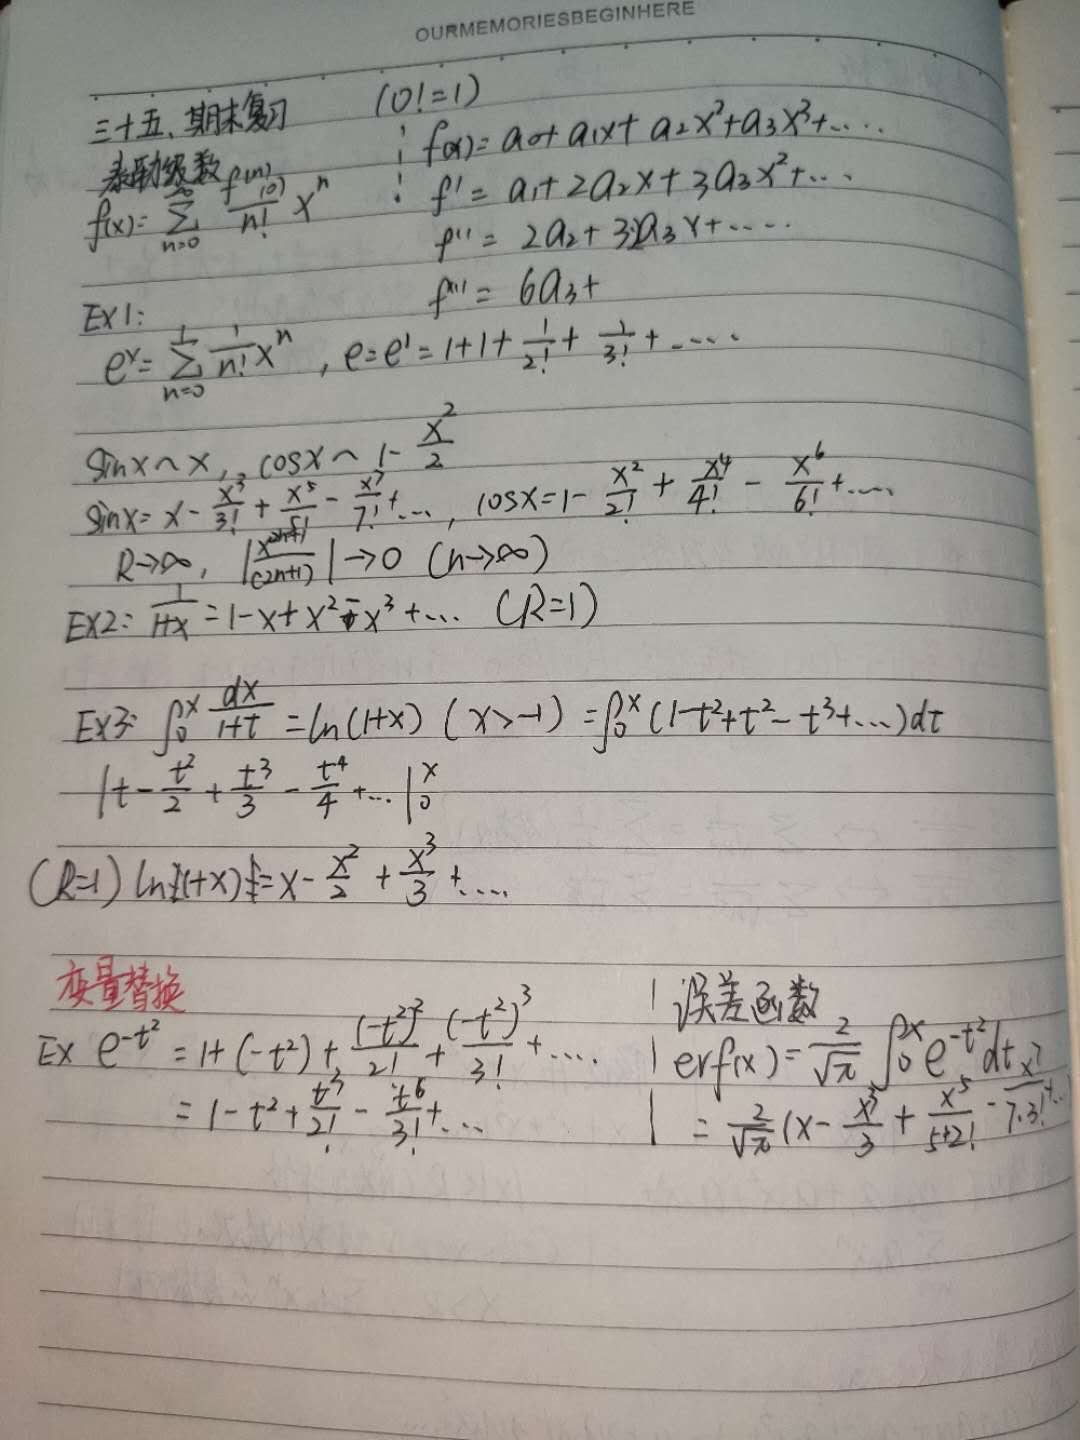 OURMEMORIESBEGINHERE
三十五、期末复习 (0!=1)
泰勒级数
f(x)=∑_{n=0}^{∞} f^{(n)}(0)/n! x^n
f(x)=a0+a1x+a2x²+a3x³+.....
f'=a1+2a2x+3a3x²+...
f''=2a2+3·2a3x+.....
f'''=6a3+
EX1:
e^x=∑_{n=0}^{1} 1/n! x^n, e=e^1=1+1+1/2!+1/3!+.....
sinx~x, cosx~1-x²/2
sinx=x-x³/3!+x⁵/5!-x⁷/7!+..., cosx=1-x²/2!+x⁴/4!-x⁶/6!+....
R→∞, |x^{2n+1}/(2n+1)|→0 (n→∞)
EX2: 1/(1+x)=1-x+x²-x³+... (R=1)
EX3: ∫_0^x dx/(1+t)=ln(1+x) (x>-1)=∫_0^x(1-t²+t²-t³+...)dt
|t-t²/2+t³/3-t⁴/4+...|_0^x
(R=1) ln(1+x)=x-x²/2+x³/3+....
变量替换
EX e^{-t²}=1+(-t²)+(-t²)²/2!+(-t²)³/3!+....
=1-t²+t³/2!-t⁶/3!+...
误差函数
erf(x)=2/√π ∫_0^x e^{-t²}dt
=2/√π(x-x³/3+x⁵/5+2!-x⁷/7·3!+...)